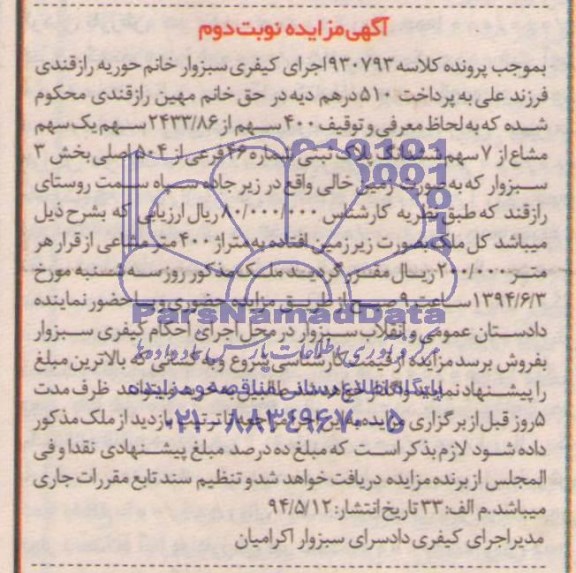 آگهی مزایده نوبت دوم
بموجب پرونده کلاسه ۹۳۰۷۹۳ اجرای کیفری سبزوار خانم حوریه رازقندی
فرزند علی به پرداخت ۵۱۰ درهم دیه در حق خانم مهین رازقندی محکوم
شده که به لحاظ معرفی و توقیف ۴۰۰ سهم از ۲۴۳۳/۸۶ سهم یک سهم
مشاع از ۷ سهم ششدانگ پلاک ثبتی شماره ۴۶ فرعی از ۵۰۴ اصلی بخش ۳
سبزوار که به صورت زمین خالی واقع در زیر جاده سیاه سمت روستای
رازقند که طبق نظریه کارشناس ۸۰/۰۰۰/۰۰۰ ریال ارزیابی که بشرح ذیل
میباشد کل ملک بصورت زیر زمین افتاده به متراژ ۴۰۰ متر مشاعی از قرار هر
متر ۲۰۰/۰۰۰ ریال مقرر گردید ملک مذکور روز سه شنبه مورخ
۱۳۹۴/۶/۳ ساعت ۹ صبح از طریق مزایده حضوری و با حضور نماینده
دادستان عمومی و انقلاب سبزوار در محل اجرای احکام کیفری سبزوار
بفروش برسد مزایده از قیمت کارشناسی شروع و به کسانی که بالاترین مبلغ
را پیشنهاد نمایند واگذار خواهد شد ظرف مدت
۵ روز قبل از برگزاری مزایده به این اجرا مراجعه تا ترتیب بازدید از ملک مذکور
داده شود لازم بذکر است که مبلغ ده درصد مبلغ پیشنهادی نقدا و فی
المجلس از برنده مزایده دریافت خواهد شد و تنظیم سند تابع مقررات جاری
میباشد.م الف: ۳۳ تاریخ انتشار: ۹۴/۵/۱۲
مدیر اجرای کیفری دادسرای سبزوار اکرامیان
ParsNamadData
مرکز فرآوری اطلاعات پارس نماد داده ها
پایگاه اطلاع رسانی مناقصه و مزایده
۰۲۱-۸۸۳۴۹۶۷۰-۵